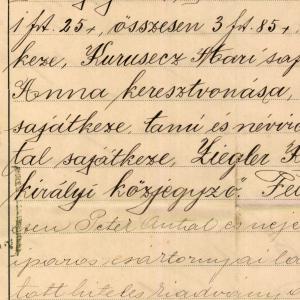 1 frt. 25 x, összesen 3 frt. 85 x,
keze, Kurusecz Mari saj
Anna keresztvonása,
sajátkeze, tanú és névír
tal sajátkeze, Ziegler K
királyi közjegyző." Fe
sen Péter Antal és neje
iparos csartornyai la
tott hiteles kiadvány